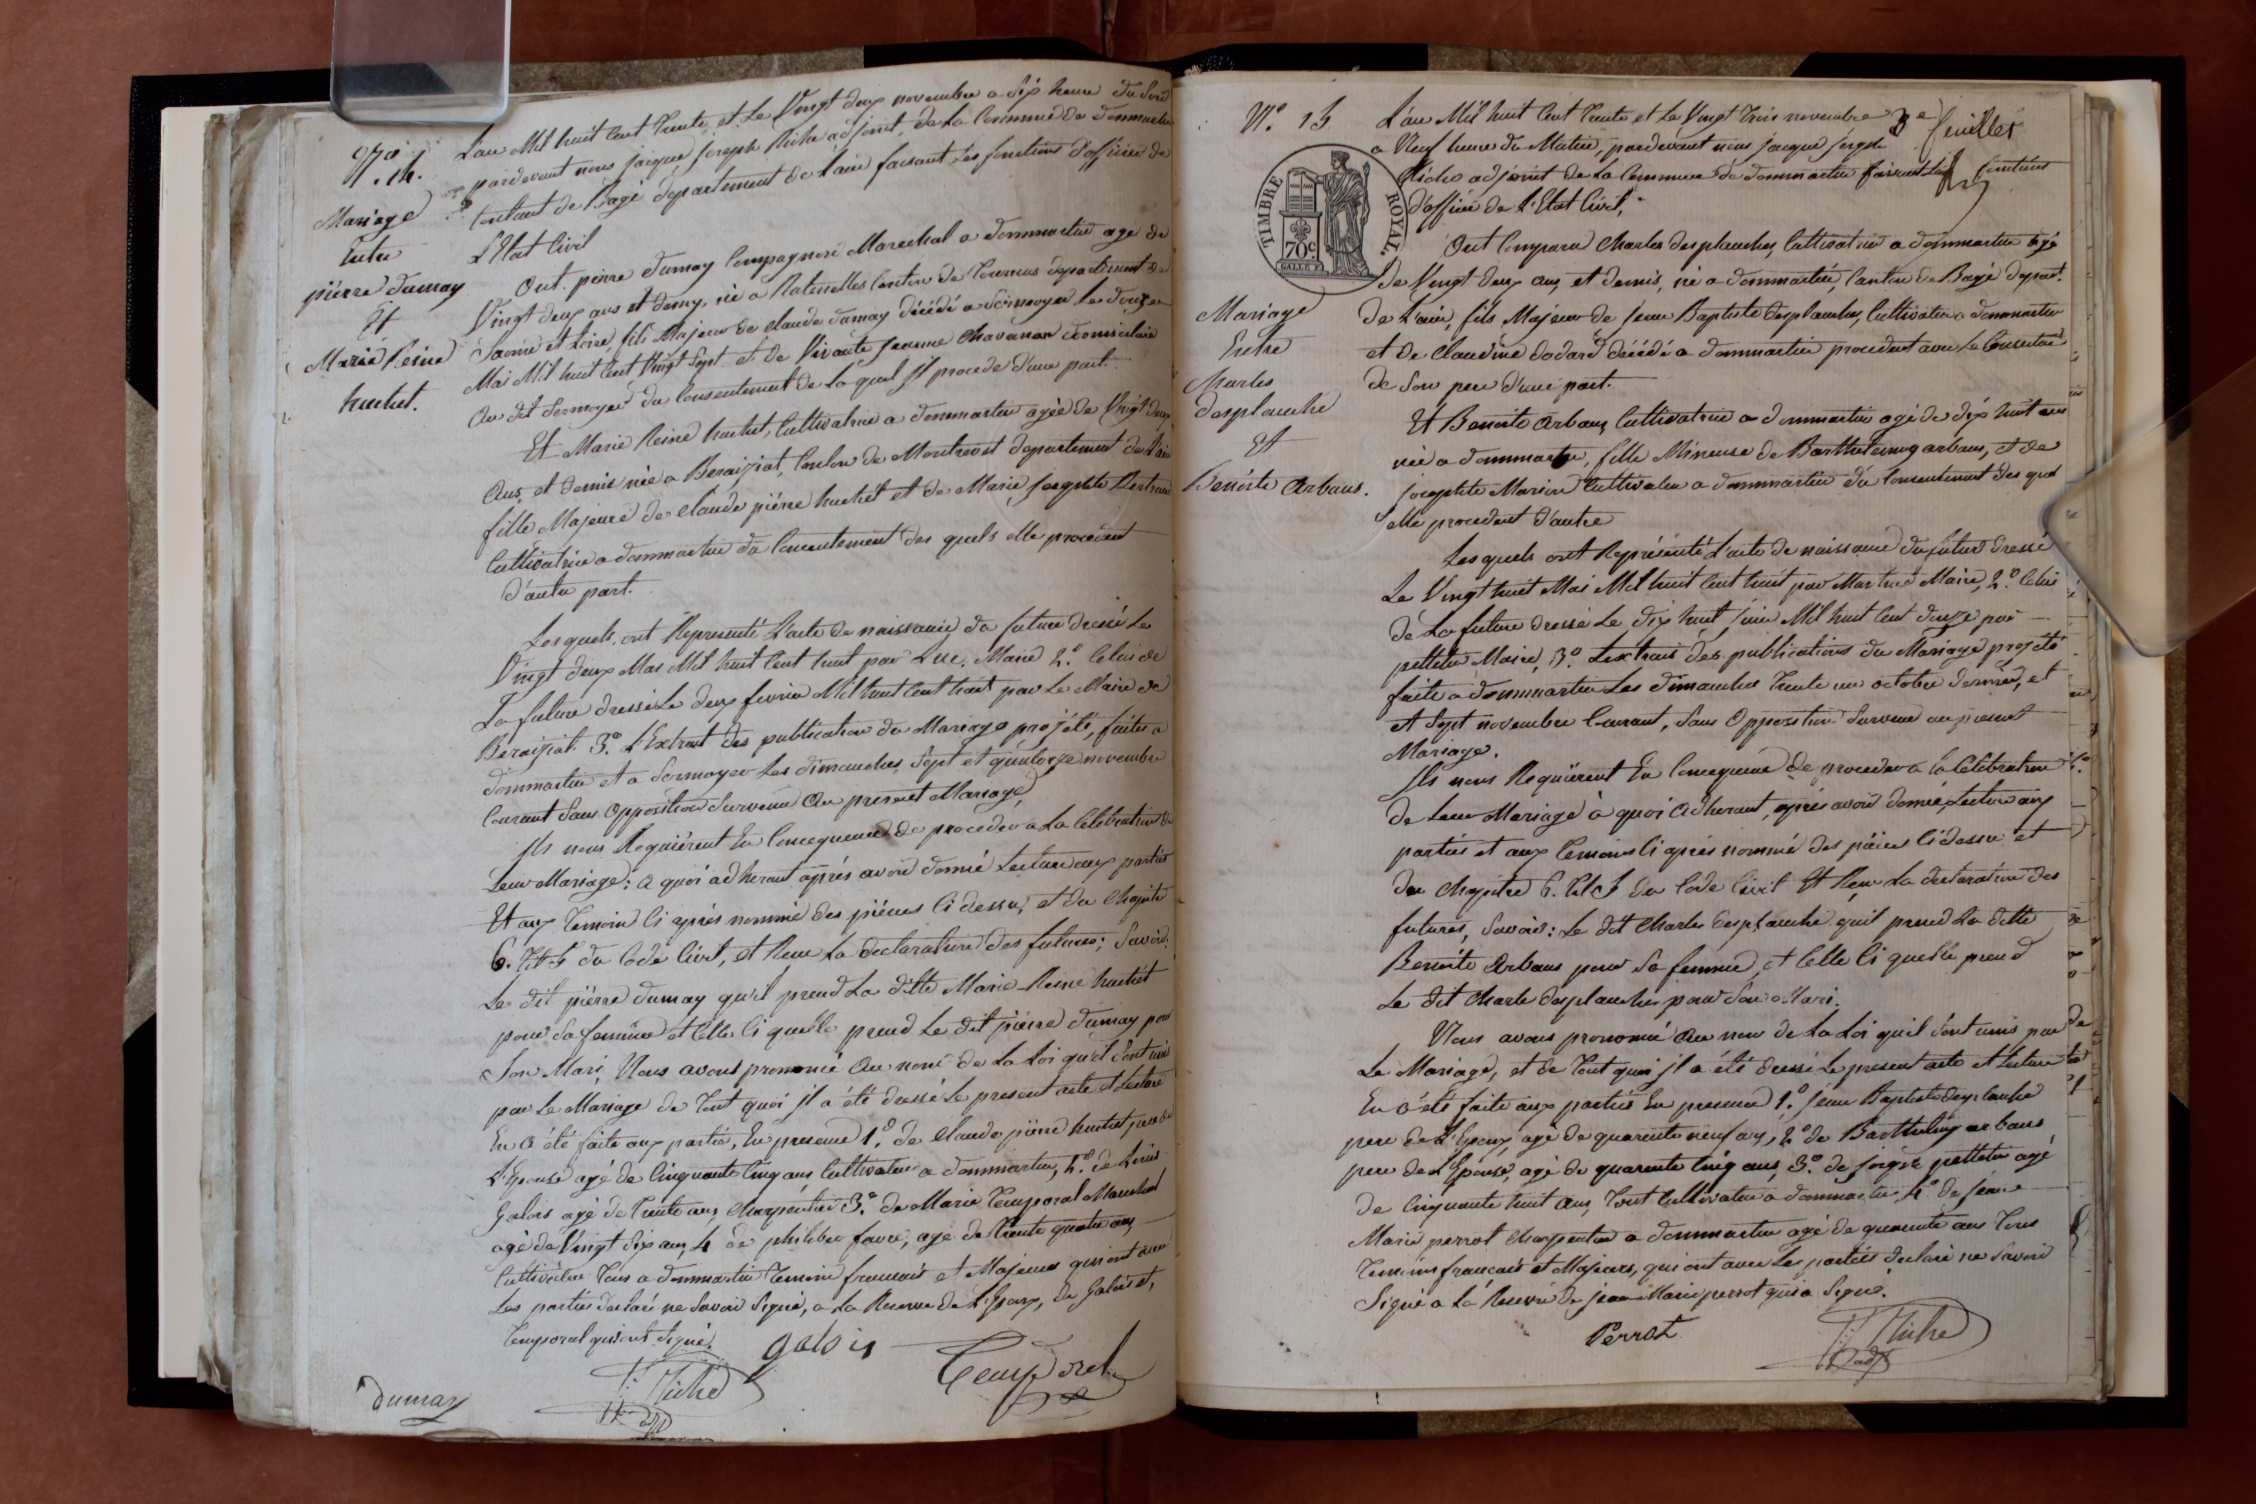 N.o 14.
Mariage
Entre
pierre dumay
Et
Marie Reine
huchet.
L'an Mil huit Cent Trente, et Le Vingt deux novembre a Six heure du Soir
pardevant nous jacque joseph Riche adjoint, de La Commune de dommartin
Canton de Bagé departement de L'ain faisant Les fonctions d'officier de
L'Etat Civil
Ont. pierre dumay Compagnon Marechal a dommartin agé de
Vingt deux ans et demy, né a Ratenelles Canton de Tournus departement de
Saone et Loire, fils Majeur de Claude dumay décédé a Sermoyer Le douze
Mai Mil huit Cent Vingt Sept et de Vivante jeanne Chavanan domiciliée
Au dit Sermoyer du Consentement de La quel jl procede d'une part.
Et Marie Reine huchet, Cultivatrice a dommartin agée de Vingt deux
Ans et demie née a Beraiziat, Canton de Montrevel departement de L'ain
fille Majeure de Claude pierre huchet et de Marie josephte Bertrand
Cultivatrice a dommartin du Consentement des quels elle procedent
d'autre part.
Les quels ont Représenté L'acte de naissance du future dressé Le
Vingt deux Mas Mil huit Cent huit par Luc, Maire 2.o Celui de
La future dressé Le deux fevrier Mil huit Cent huit par Le Maire de
Beraiziat. 3.o L'Extrait des publication du Mariage projété, faites a
dommartin et a Sermoyer Les dimanches Sept et quatorze novembre
Courant Sans Opposition Survenue Au present Mariage,
Ils nous Requièrent En Consequence de proceder a La Celebration de
Leur Mariage: a quoi adherant après avoir donné Lecture aux parties
Et aux Temoins Ci après nommé des pièces Ci dessu, et du Chapitre
6. Tit 5 du Code Civil, et Reçu La declaration des futures; Savoir:
Le dit pièrre dumay qu'il prend La ditte Marie Reine huchet
pour Sa femme et Celle Ci quelle prend Le dit pierre dumay pour
Son Mari, Nous avons prononcé Au nom de La Loi qu'il Sont unis
par Le Mariage de Tout quoi jl a été dressé Le present acte et Lecture
En a été faite aux partie, En presence 1.o de Claude pierre huchet pere de
L'Epouse agé de Cinquante Cinq ans Cultivateur a dommartin, 2.o de Louis
Galois agé de Trente ans, Charpentier 3.o de Marie Temporal Marechal
agé de Vingt Six ans, 4 de philibert favre, agé de Trente quatre ans
Cultivateur Tous a dommartin Temoins francais et Majeures qui ont avec
Les parties declaré ne Savoir Signé, a La Reserve de L'Epoux, de Galois et,
Temporal qui ont Signé.
galois
Temporal
Riche
adj
dumay
3e feuillet
N.o 15
TIMBRE ROYAL.
70c
Mariage
Entre
Charles
desplanche
Et
Benoite Arbans.
L'an Mil huit Cent Trente et Le Vingt Trois novembre
a Neuf heure du Matin, pardevant nous jacque joseph
Riche adjoint de La Commune de dommartin faisant Les fonctions
d'officier de L'Etat Civil,
Ont Comparu Charles desplanches, Cultivateur a dommartin agé
de Vingt deux ans et demis, né a dommartin, Canton de Bagé depart.t
de L'ain, fils Majeur de jean Baptiste desplanches, Cultivateur a dommartin
et de Claudine dodard décédé a dommartin procedent avec Le Consentant
de Son pere d'une part.
Et Benoite Arbans Cultivatrice a dommartin agé de dix huit ans
née a dommartin, fille Mineuse de Barthelemy arbans, et de
josephte Marion Cultivateur a dommartin du Consentement des quel
elle procedent d'autre
Les quels ont Représenté L'acte de naissance du futur dressé
Le Vingt huit Mai Mil huit Cent huit par Maire, 2.o Celui
de La future dressé Le dix huit juin Mil huit Cent douze par
pelletin Maire, 3.o L'extrais des publications du Mariage projeté
faite a dommartin Les dimanches Trente un octobre dernier, et
et Sept novembre Courant, Sans Opposition Survenue au present
Mariage.
Ils nous Requièrent En Consequence de proceder a la Célébration
de Leur Mariage à quoi adherant, après avoir donné Lecture aux
parties et aux Temoins Ci après nommé des pièces Ci dessu et
du Chapitre 6. tit 5 du Code Civil Et Reçu La declaration des
futures, Savoir: Le dit Charles desplanche quil prend La ditte
Benoite Arbans pour Sa femme, et Celle Ci quelle prend
Le dit Charle desplanches pour Son Mari.
Nous avons prononcé Au nom de La Loi qu'il Sont unis par
Le Mariage, et de Tout quoi jl a été dressé Le present acte et Lecture
En a été faite aux parties En presence 1.o jean Baptiste desplanche
pere de L'Epoux, agé de quarente neuf ans, 2.o de Barthelmy arbans
pere de L'Epouse, agé de quarente Cinq ans, 3.o de joseph pelletin agé
de Cinquante huit ans, Tout Cultivateur a dommartin, 4.o de jean
Marie perrot Charpentier a dommartin agé de quarente ans Tous
Temoins francais et Majeurs, qui ont avec Les parties declaré ne Savoir
Signé a La Reserve de jean Marie perrot qui a Signé.
Perrot
Riche
adj